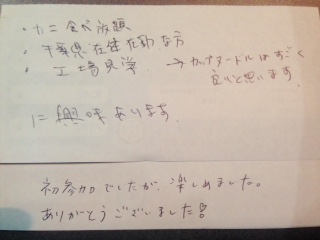 ・カニ食べ放題
・千葉県在住在勤な方
・工場見学 → カップヌードルはすごく
良いと思います。
に興味あります。
初参加でしたが、楽しめました。
ありがとうございました!